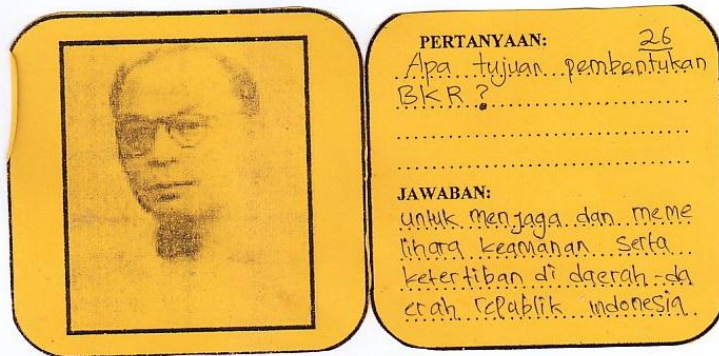 PERTANYAAN: 26
Apa tujuan pembentukan
BKR?
JAWABAN:
untuk menjaga dan meme
lihara keamanan serta
ketertiban di daerah-da
erah republik indonesia